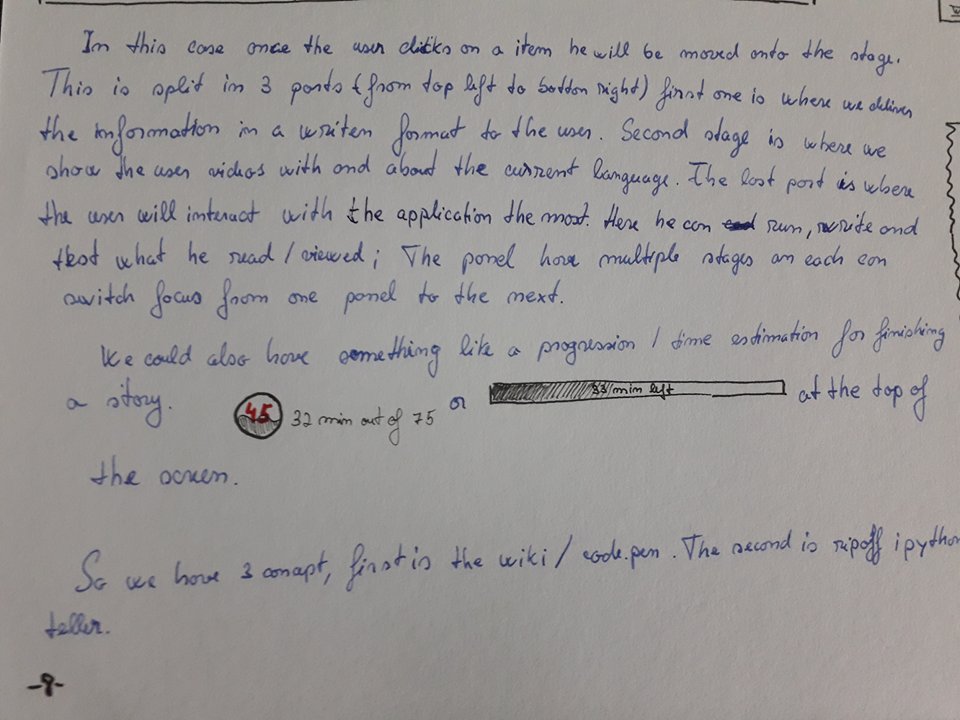 In this case once the user clicks on a item he will be moved onto the stage.
This is split in 3 parts (from top left to botton right) first one is where we deliver
the information in a writen format to the user. Second stage is where we
show the user videos with and about the current language. The last part is where
the user will interact with the application the most. Here he can run, write and
test what he read / viewed; The panel have multiple stages an each can
switch focus from one panel to the next.
We could also have something like a progression / time estimation for finishing
a story. 45 32 min out of 75 or 33/min left at the top of
the screen.
So we have 3 conapt, first is the wiki / code.pen. The second is ripoff ipython
teller.
-8-